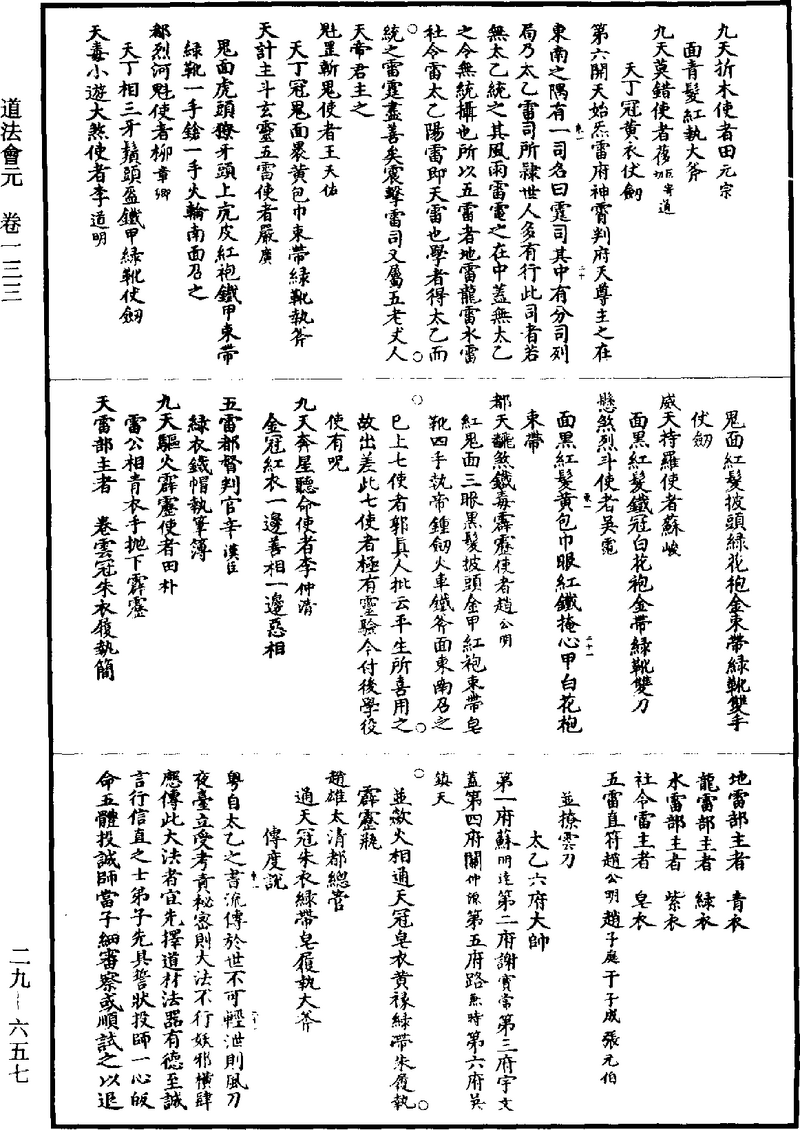 道法會元 卷一三三
九天折木使者田元宗
面青髮紅執大斧
九天莫錯使者
天丁冠黃衣仗劒
第六開天始炁雷府神霄判府天尊主之在
東南之隅有一司名曰霆司其中有分司列
局乃太乙雷司所隸世人多有行此司者若
無太乙統之其風雨雷電之在中蓋無太乙
之令無統攝也所以五雷者地雷龍雷水雷
社令雷太乙陽雷即天雷也學者得太乙而
統之雷霆盡善矣震擊雷司又屬五老丈人
天帝君主之
魁罡斬鬼使者王天佑
天丁冠鬼面累黃包巾束帶綠靴執斧
天計主斗玄靈五雷使者嚴廣
鬼面虎頭獠牙頭上虎皮紅袍鐵甲束帶
綠靴一手鎗一手火輪南面召之
都烈河魁使者柳章卿
天丁相三牙鬚頭盔鐵甲綠靴仗劒
天毒小遊大煞使者李道明
鬼面紅髮披頭綠花袍金束帶綠靴雙手
仗劒
威天持羅使者蘇峻
面黑紅髮鐵冠白花袍金帶綠靴雙刀
懸煞烈斗使者吳霓
面黑紅髮黃包巾眼紅鐵掩心甲白花袍
束帶
都天魒煞鐵毒霹靂使者趙公明
紅鬼面三眼黑髮披頭金甲紅袍束帶皂
靴四手執帝鍾劒火車鐵斧面東南召之
已上七使者郭真人批云平生所喜用之
故出差此七使者極有靈驗今付後學役
使有呪
九天奔星聽命使者李仲清
金冠紅衣一邊善相一邊惡相
五雷都督判官辛漢臣
綠衣鐵帽執筆簿
九天驅火霹靂使者田朴
雷公相青衣手抛下霹靂
天雷部主者 卷雲冠朱衣履執簡
地雷部主者 青衣
龍雷部主者 綠衣
水雷部主者 紫衣
社令雷主者 皂衣
五雷直符趙公明趙子庭于子成張元伯
並撩雲刀
太乙六府大帥
第一府蘇明達第二府謝實常第三府宇文
蓋第四府關仲源第五府路熙時第六府吳
鎮天
並歘火相通天冠皂衣黃襐綠帶朱履執
霹靂瓶
趙雄太清都總管
通天冠朱衣綠帶皂履執大斧
傳度說
粵自太乙之書流傳於世不可輕泄則風刀
夜臺立受考責秘密則大法不行妖邪橫肆
應傳此大法者宜先擇道材法器有德至誠
言行信直之士弟子先具誓狀投師一心皈
命五體投誠師當子細審察或順試之以退
二九–六五七